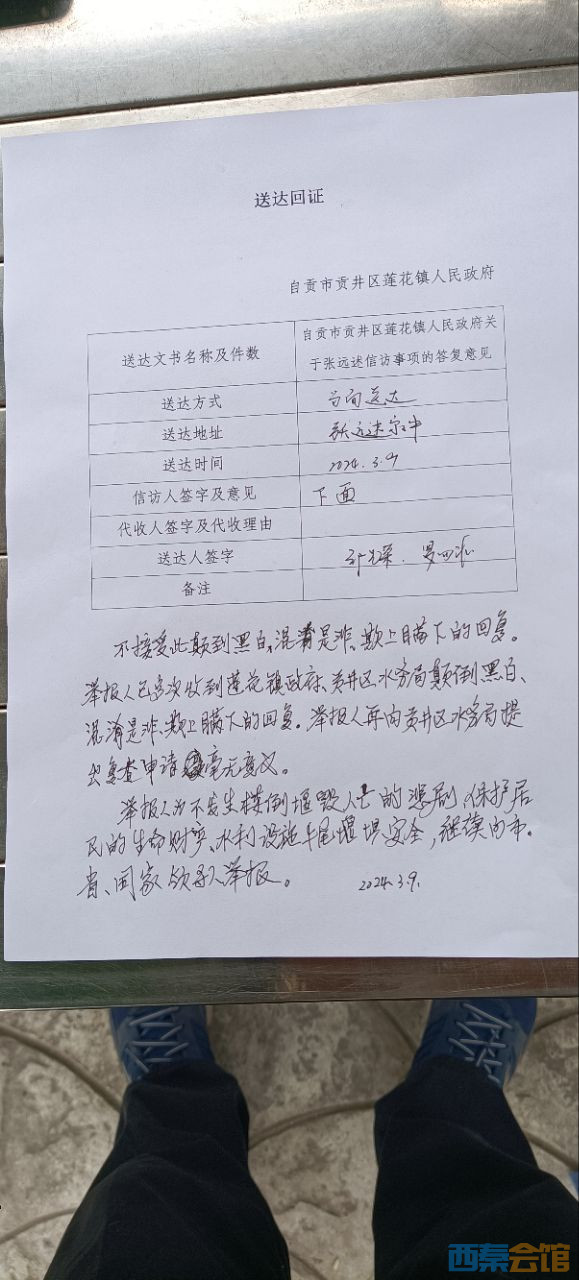 送达回证
自贡市贡井区莲花镇人民政府
送达文书名称及件数
自贡市贡井区莲花镇人民政府关
于张远述信访事项的答复意见
送达方式 当面送达
送达地址 张远述家中
送达时间 2024.3.9
信访人签字及意见 下面
代收人签字及代收理由
送达人签字
备注
不接受此颠到黑白,混淆是非、欺上瞒下的回复。
举报人已多次收到莲花镇政府、贡井区水务局颠倒黑白、
混淆是非、欺上瞒下的回复。举报人再向贡井区水务局提
出复查申请毫无意义。
举报人为不发生楼倒堰毁人亡的悲剧、保护居
民的生命财产、水利设施牛尾堰坝安全,继续向市、
省、国家领导人举报。 2024.3.9.
西秦会馆